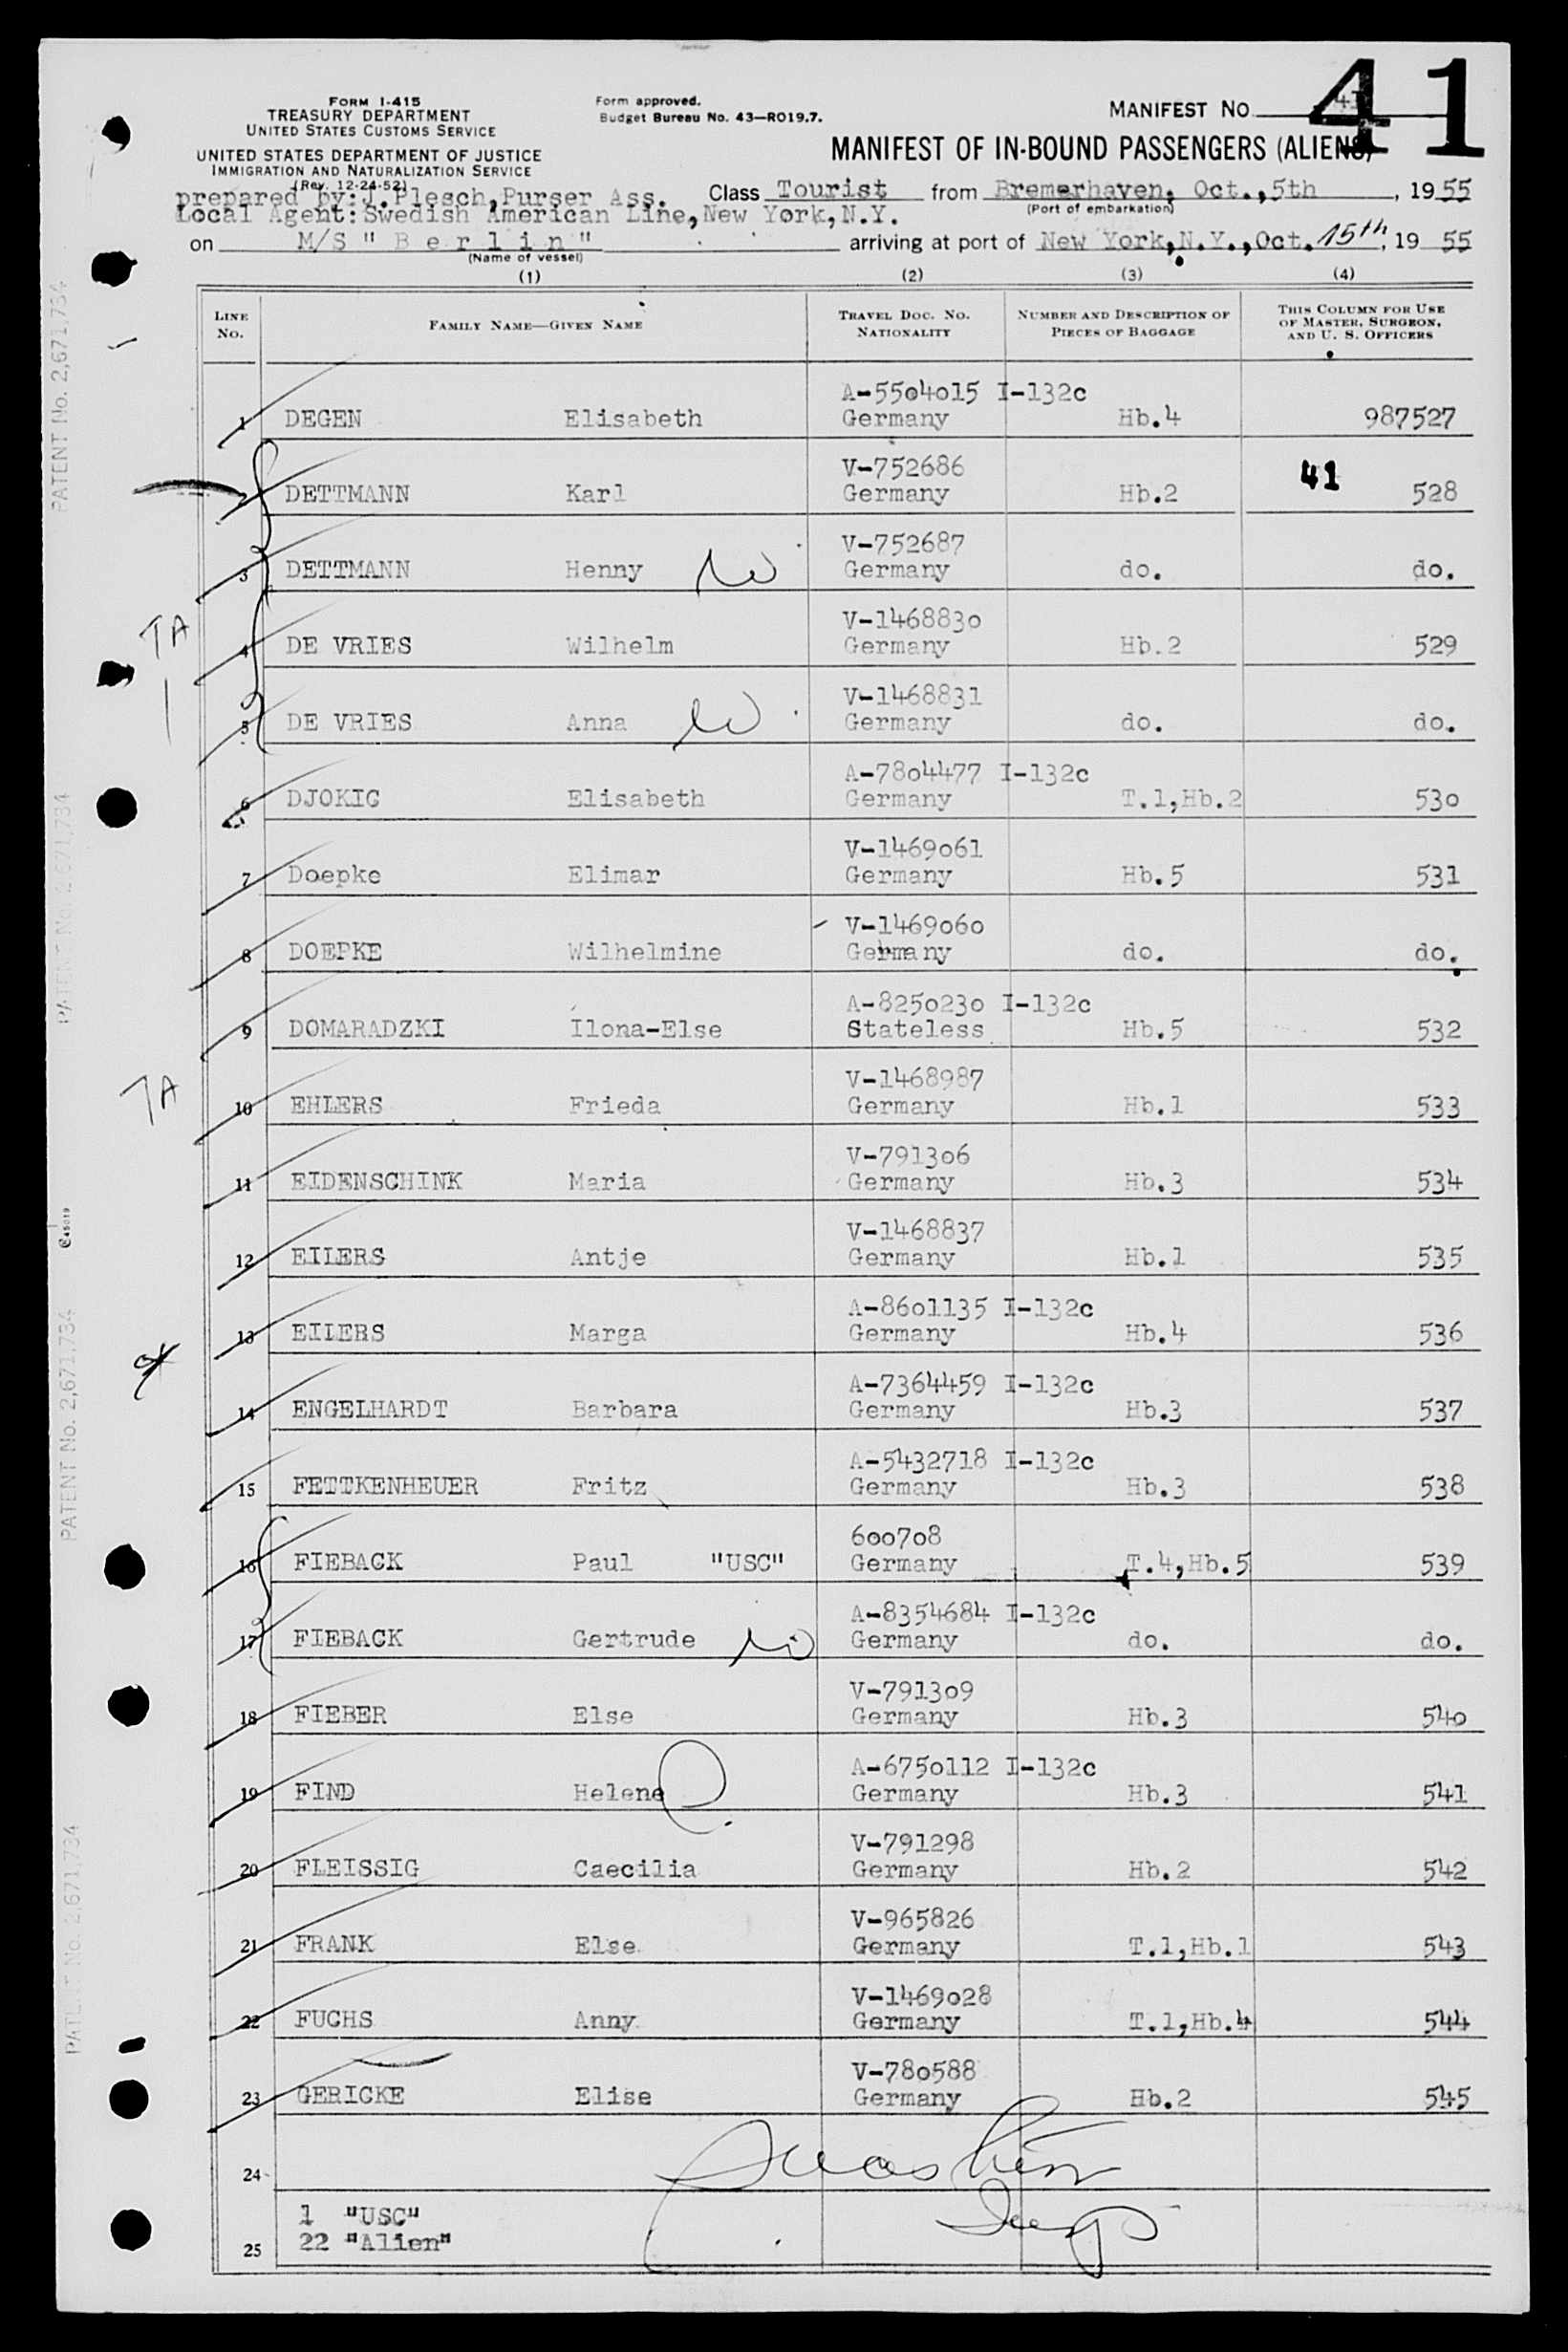 41
FORM I-415
TREASURY DEPARTMENT
UNITED STATES CUSTOMS SERVICE
UNITED STATES DEPARTMENT OF JUSTICE
IMMIGRATION AND NATURALIZATION SERVICE
(Rev. 12-24-52)
Form approved.
Budget Bureau No. 43—RO19.7.
MANIFEST NO. 41
MANIFEST OF IN-BOUND PASSENGERS (ALIENS)
prepared by: J. Plesch, Purser Ass. Class Tourist from Bremerhaven, Oct.,5th, 1955
(Port of embarkation)
Local Agent: Swedish American Line, New York, N.Y.
on M/S " B e r l i n " arriving at port of New York, N.Y., Oct. 15th, 19 55
(Name of vessel)
(1) (2) (3) (4)
LINE No. FAMILY NAME—GIVEN NAME TRAVEL DOC. NO. NATIONALITY NUMBER AND DESCRIPTION OF PIECES OF BAGGAGE THIS COLUMN FOR USE OF MASTER, SURGEON, AND U. S. OFFICERS
A-5504015 I-132c
1 DEGEN Elisabeth Germany Hb.4 987527
V-752686 41
2 DETTMANN Karl Germany Hb.2 528
V-752687
3 DETTMANN Henny Germany do. do.
TA V-1468830
4 DE VRIES Wilhelm Germany Hb.2 529
V-1468831
5 DE VRIES Anna Germany do. do.
A-7804477 I-132c
6 DJOKIC Elisabeth Germany T.1,Hb.2 530
V-1469061
7 Doepke Elimar Germany Hb.5 531
V-1469060
8 DOEPKE Wilhelmine Germany do. do.
A-8250230 I-132c
9 DOMARADZKI Ilona-Else Stateless Hb.5 532
TA V-1468987
10 EHLERS Frieda Germany Hb.1 533
V-791306
11 EIDENSCHINK Maria Germany Hb.3 534
V-1468837
12 EILERS Antje Germany Hb.1 535
A-8601135 I-132c
13 EILERS Marga Germany Hb.4 536
A-7364459 I-132c
14 ENGELHARDT Barbara Germany Hb.3 537
A-5432718 I-132c
15 FETTKENHEUER Fritz Germany Hb.3 538
600708
16 FIEBACK Paul "USC" Germany T.4,Hb.5 539
A-8354684 I-132c
17 FIEBACK Gertrude Germany do. do.
V-791309
18 FIEBER Else Germany Hb.3 540
A-6750112 I-132c
19 FIND Helene Germany Hb.3 541
V-791298
20 FLEISSIG Caecilia Germany Hb.2 542
V-965826
21 FRANK Else Germany T.1,Hb.1 543
V-1469028
22 FUCHS Anny Germany T.1,Hb.4 544
V-780588
23 GERICKE Elise Germany Hb.2 545
24
1 "USC"
22 "Alien"
25
PATENT No. 2,671,734
PATENT No. 2,671,734
PATENT No. 2,671,734
PATENT No. 2,671,734